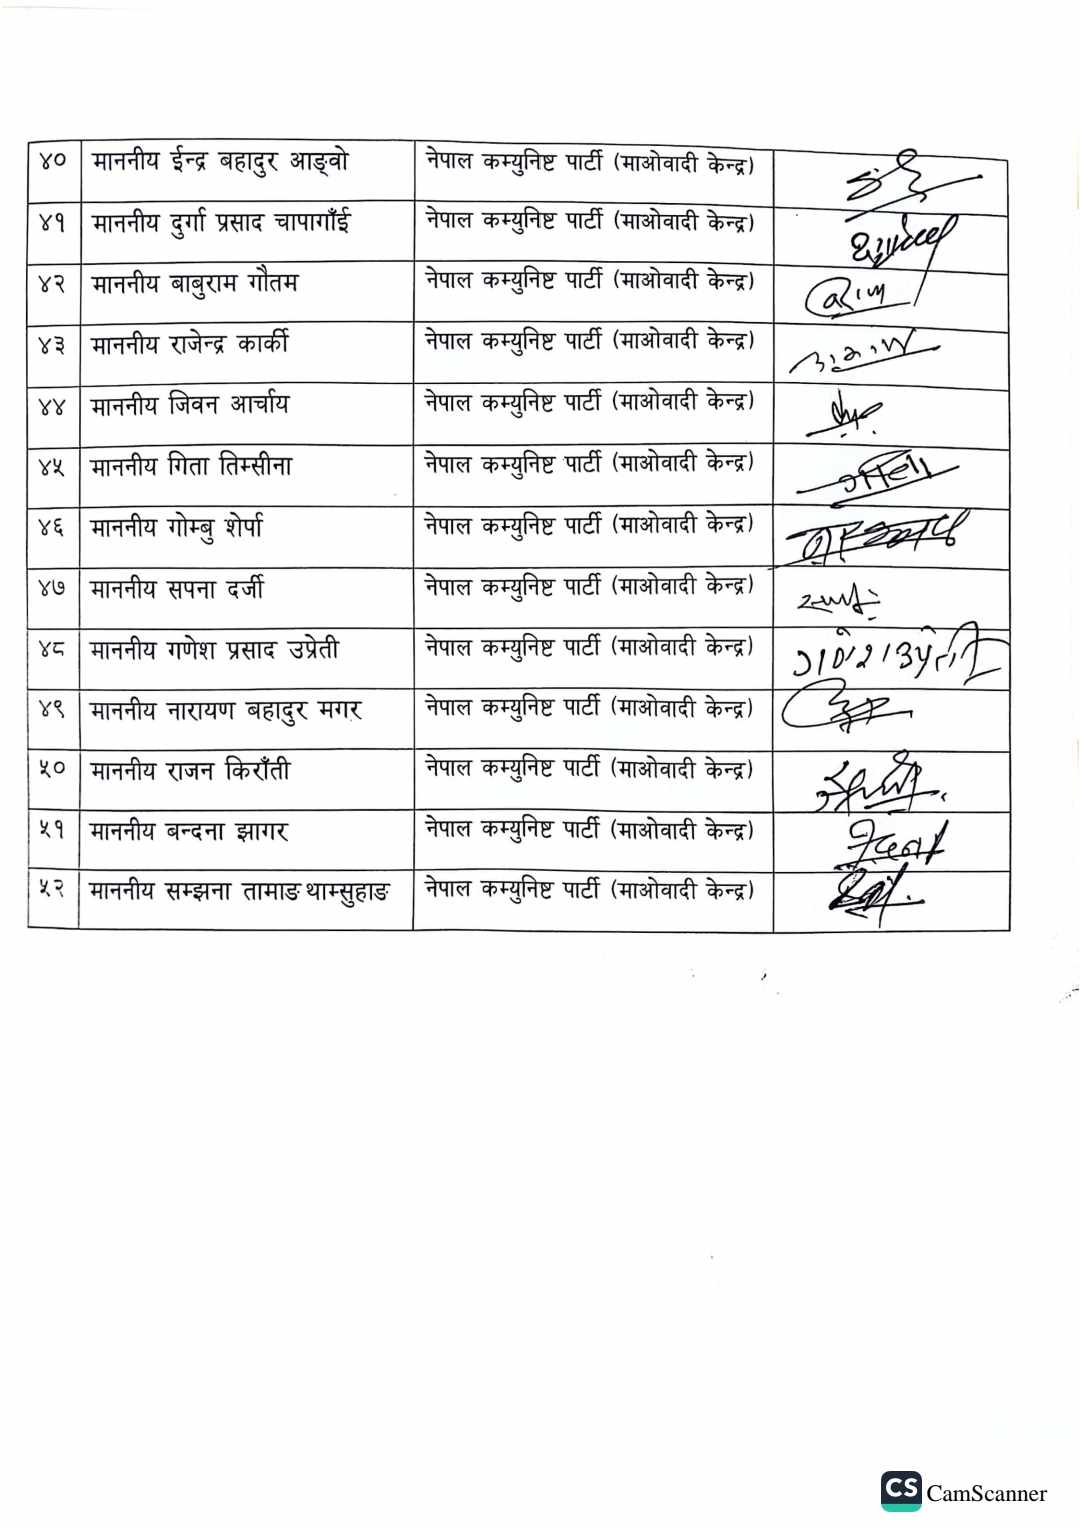 ४० माननीय ईन्द्र बहादुर आङ्वो नेपाल कम्युनिष्ट पार्टी (माओवादी केन्द्र)
४१ माननीय दुर्गा प्रसाद चापागाँई नेपाल कम्युनिष्ट पार्टी (माओवादी केन्द्र)
४२ माननीय बाबुराम गौतम नेपाल कम्युनिष्ट पार्टी (माओवादी केन्द्र)
४३ माननीय राजेन्द्र कार्की नेपाल कम्युनिष्ट पार्टी (माओवादी केन्द्र)
४४ माननीय जिवन आर्चाय नेपाल कम्युनिष्ट पार्टी (माओवादी केन्द्र)
४५ माननीय गिता तिम्सीना नेपाल कम्युनिष्ट पार्टी (माओवादी केन्द्र)
४६ माननीय गोम्बु शेर्पा नेपाल कम्युनिष्ट पार्टी (माओवादी केन्द्र)
४७ माननीय सपना दर्जी नेपाल कम्युनिष्ट पार्टी (माओवादी केन्द्र)
४८ माननीय गणेश प्रसाद उप्रेती नेपाल कम्युनिष्ट पार्टी (माओवादी केन्द्र)
४९ माननीय नारायण बहादुर मगर नेपाल कम्युनिष्ट पार्टी (माओवादी केन्द्र)
५० माननीय राजन किराँती नेपाल कम्युनिष्ट पार्टी (माओवादी केन्द्र)
५१ माननीय बन्दना झागर नेपाल कम्युनिष्ट पार्टी (माओवादी केन्द्र)
५२ माननीय सम्झना तामाङ थाम्सुहाङ नेपाल कम्युनिष्ट पार्टी (माओवादी केन्द्र)
CS CamScanner